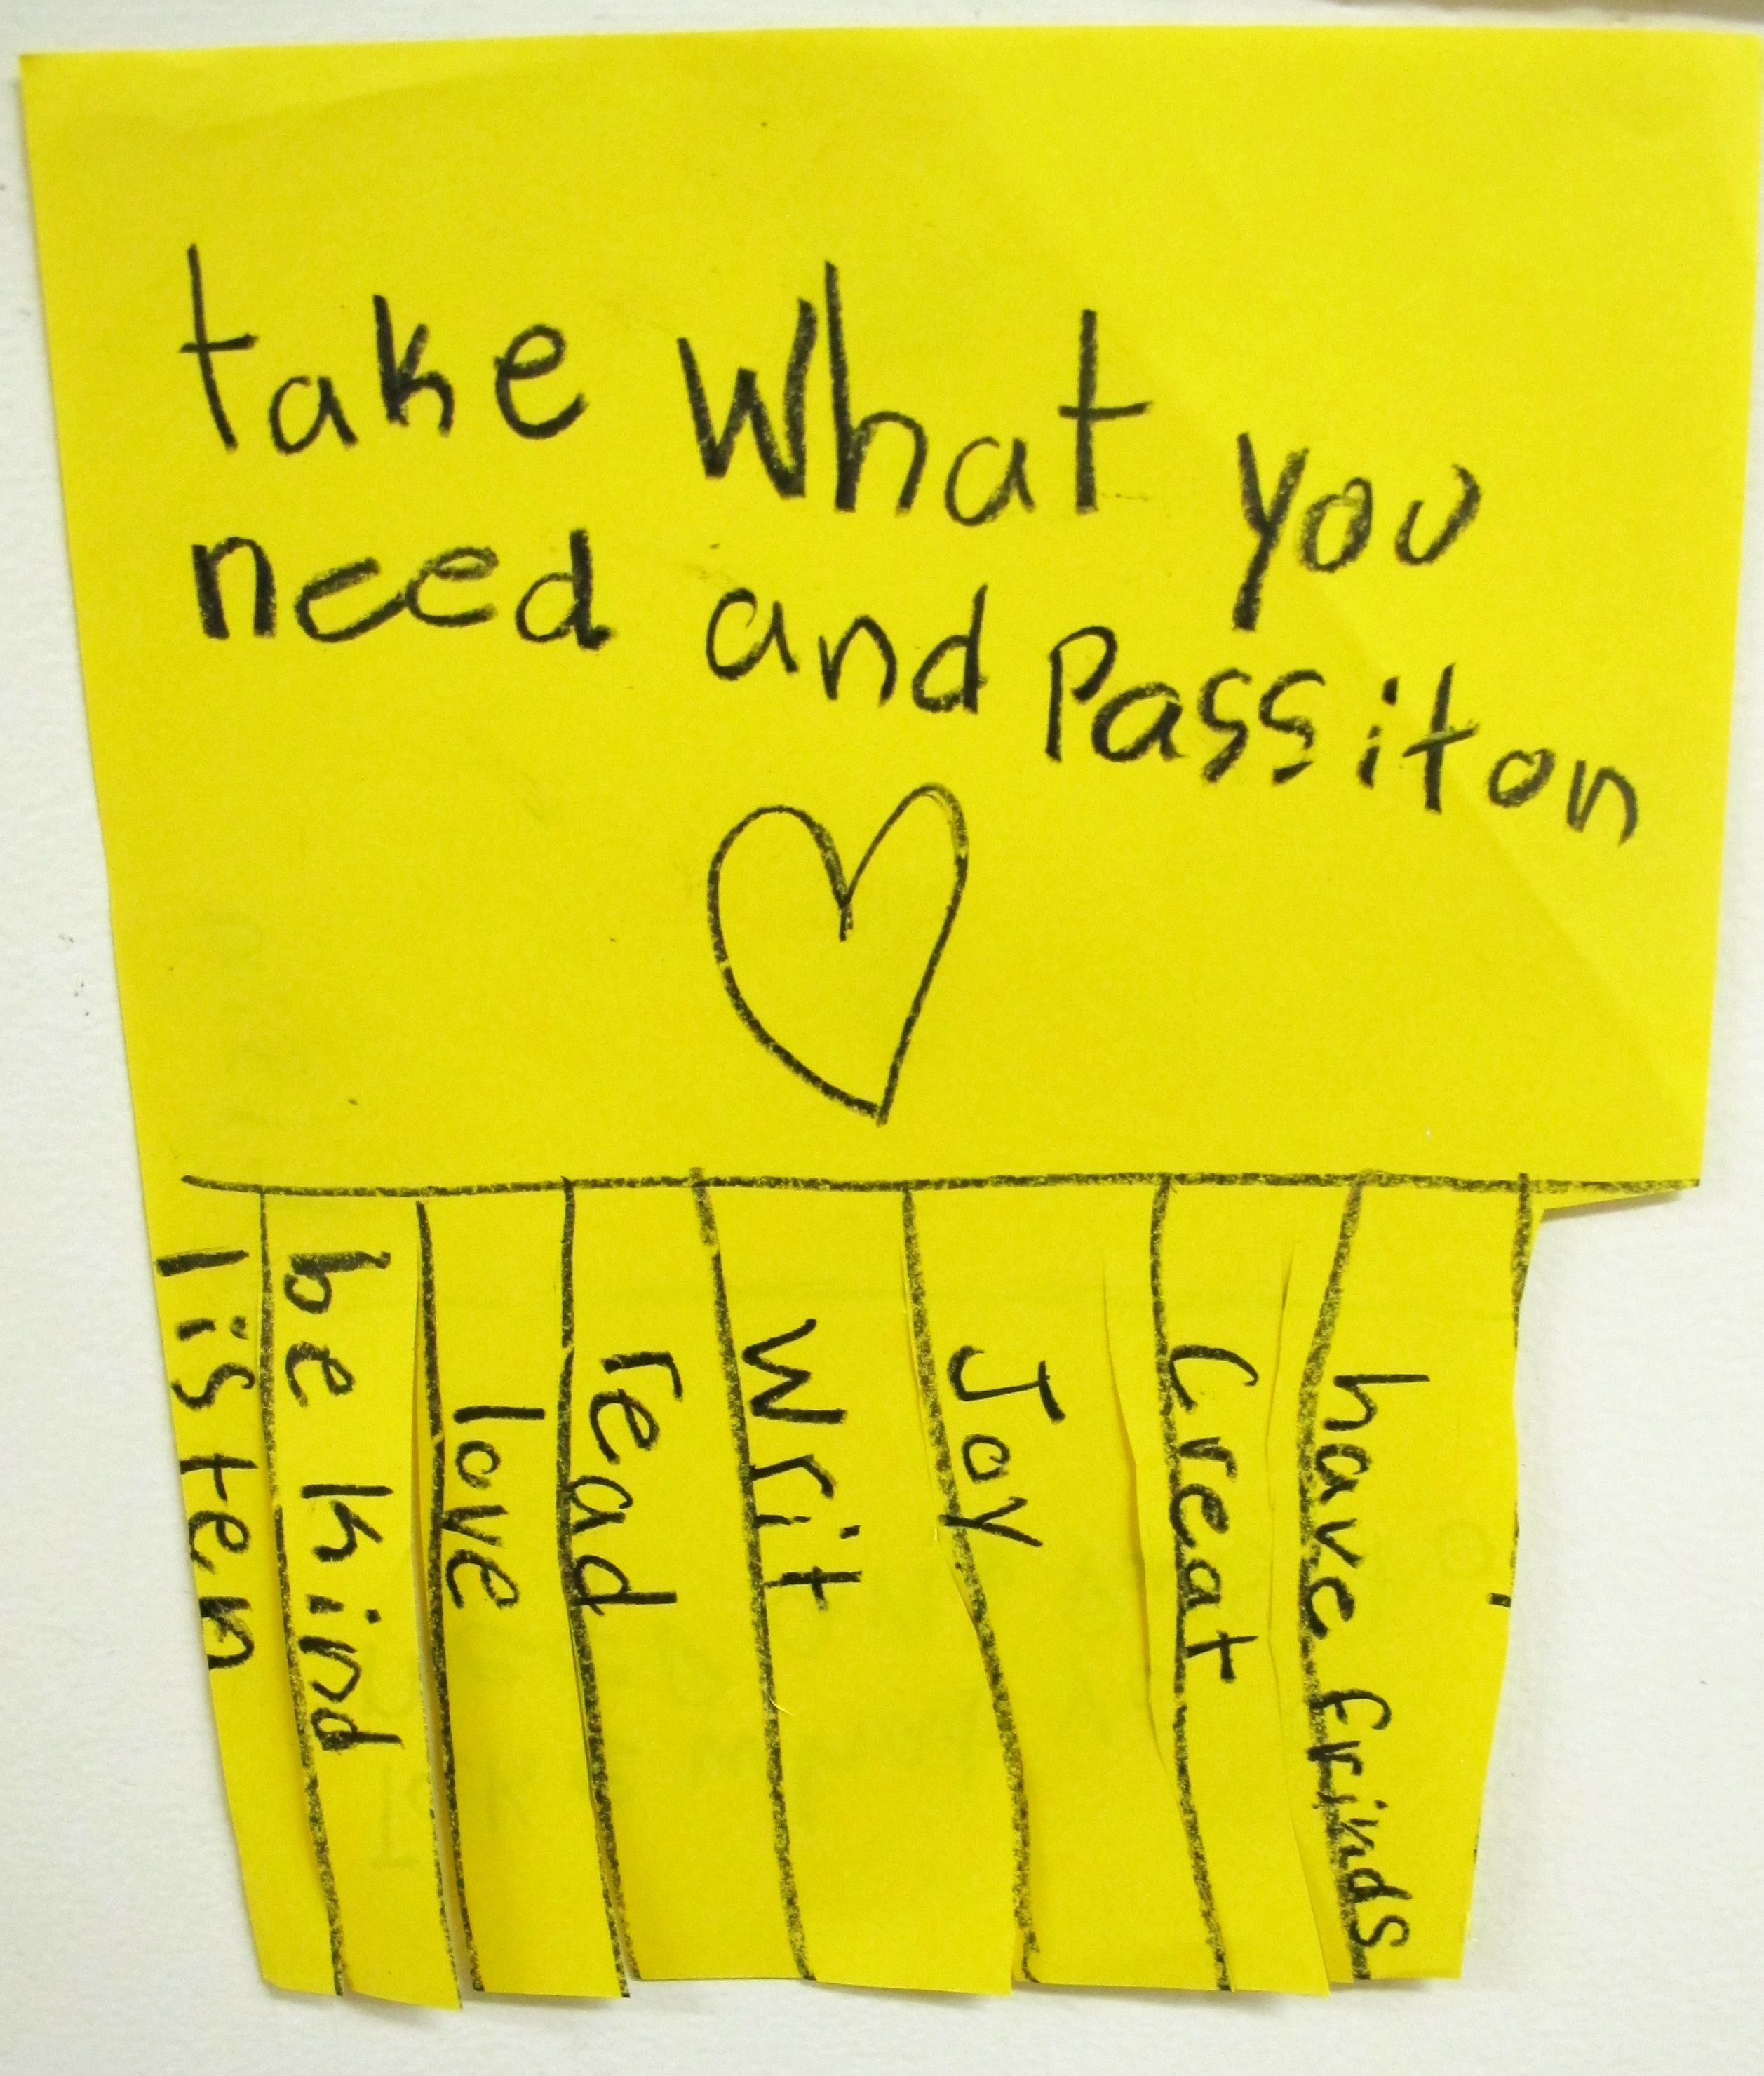 take what you
need and Pass it on
listen
be kind
love
read
writ
Joy
Creat
have frinds